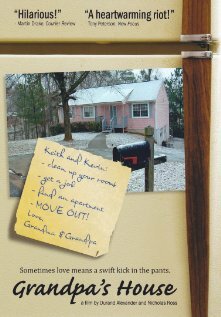 "Hilarious!"
- Martin Drake, Courier Review
"A heartwarming riot!"
- Tony Peterson, New Focus
Keith and Kevin:
- clean up your room
- get a job
- find an apartment
- MOVE OUT!
Love,
Grandma & Grandpa
Sometimes love means a swift kick in the pants.
Grandpa's House
a film by Durand Alexander and Nicholas Ross